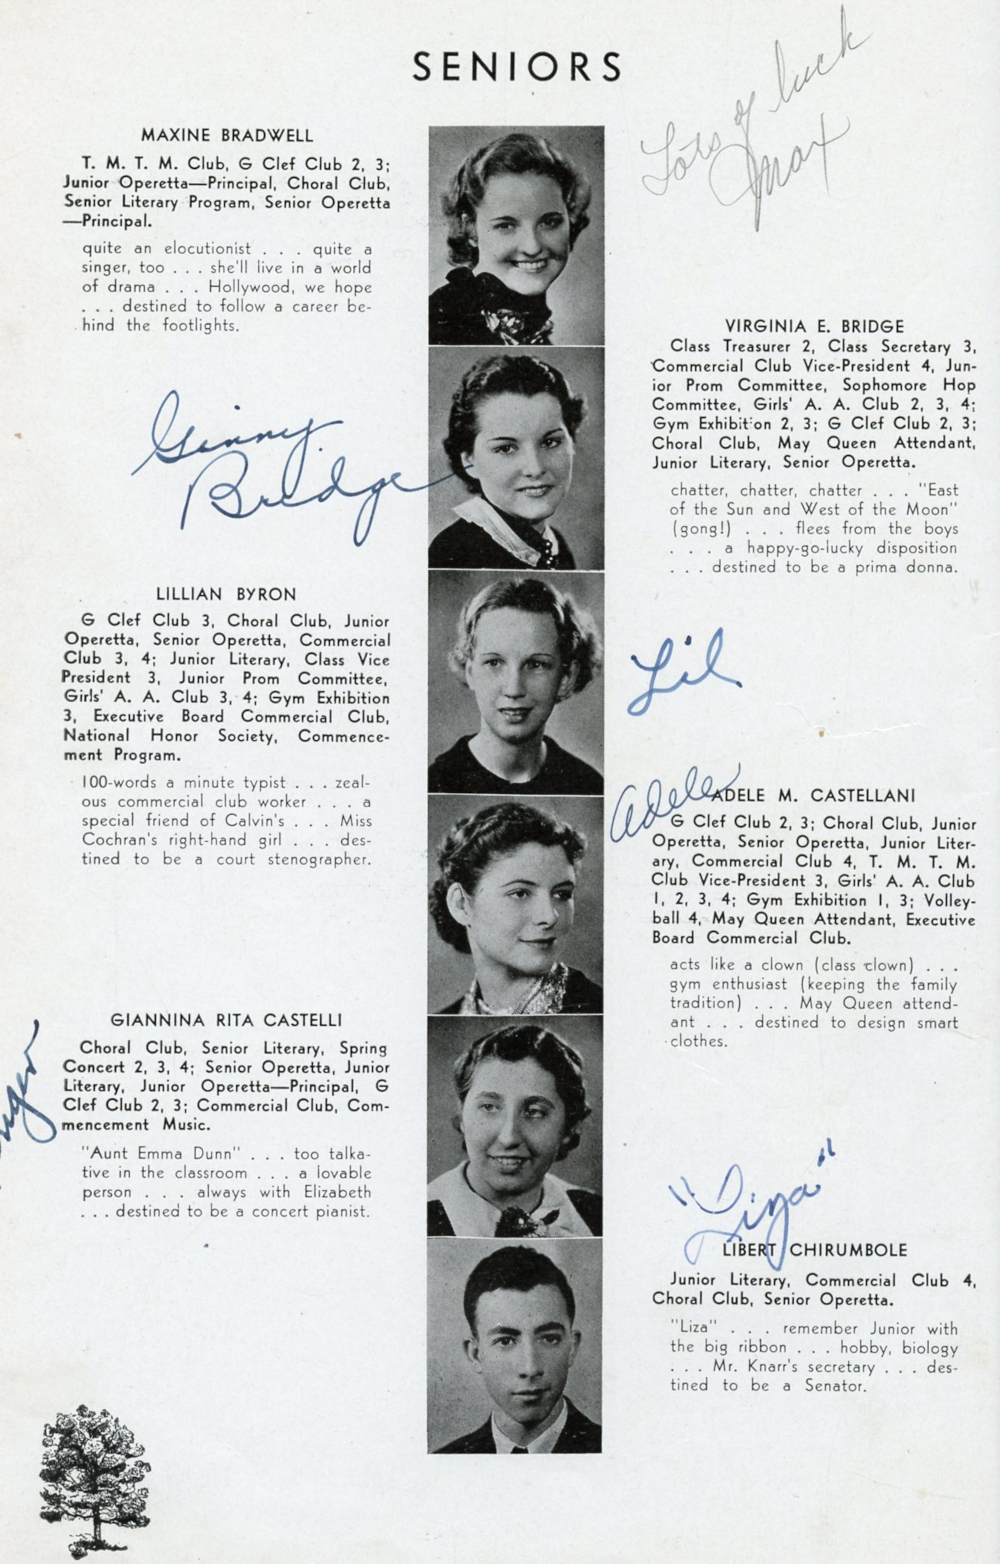 SENIORS
Lots of luck
Max
MAXINE BRADWELL
T. M. T. M. Club, G Clef Club 2, 3;
Junior Operetta—Principal, Choral Club,
Senior Literary Program, Senior Operetta
—Principal.
quite an elocutionist . . . quite a
singer, too . . . she'll live in a world
of drama . . . Hollywood, we hope
. . . destined to follow a career be-
hind the footlights.
VIRGINIA E. BRIDGE
Class Treasurer 2, Class Secretary 3,
Commercial Club Vice-President 4, Jun-
ior Prom Committee, Sophomore Hop
Committee, Girls' A. A. Club 2, 3, 4;
Gym Exhibition 2, 3; G Clef Club 2, 3;
Choral Club, May Queen Attendant,
Junior Literary, Senior Operetta.
chatter, chatter, chatter . . . "East
of the Sun and West of the Moon"
(gong!) . . . flees from the boys
. . . a happy-go-lucky disposition
. . . destined to be a prima donna.
Ginny
Bridge
LILLIAN BYRON
G Clef Club 3, Choral Club, Junior
Operetta, Senior Operetta, Commercial
Club 3, 4; Junior Literary, Class Vice
President 3, Junior Prom Committee,
Girls' A. A. Club 3, 4; Gym Exhibition
3, Executive Board Commercial Club,
National Honor Society, Commence-
ment Program.
100-words a minute typist . . . zeal-
ous commercial club worker . . . a
special friend of Calvin's . . . Miss
Cochran's right-hand girl . . . des-
tined to be a court stenographer.
Lil
Adele
ADELE M. CASTELLANI
G Clef Club 2, 3; Choral Club, Junior
Operetta, Senior Operetta, Junior Liter-
ary, Commercial Club 4, T. M. T. M.
Club Vice-President 3, Girls' A. A. Club
1, 2, 3, 4; Gym Exhibition 1, 3; Volley-
ball 4, May Queen Attendant, Executive
Board Commercial Club.
acts like a clown (class clown) . . .
gym enthusiast (keeping the family
tradition) . . . May Queen attend-
ant . . . destined to design smart
clothes.
GIANNINA RITA CASTELLI
Choral Club, Senior Literary, Spring
Concert 2, 3, 4; Senior Operetta, Junior
Literary, Junior Operetta—Principal, G
Clef Club 2, 3; Commercial Club, Com-
mencement Music.
"Aunt Emma Dunn" . . . too talka-
tive in the classroom . . . a lovable
person . . . always with Elizabeth
. . . destined to be a concert pianist.
"Liza"
LIBERT CHIRUMBOLE
Junior Literary, Commercial Club 4,
Choral Club, Senior Operetta.
"Liza" . . . remember Junior with
the big ribbon . . . hobby, biology
. . . Mr. Knarr's secretary . . . des-
tined to be a Senator.